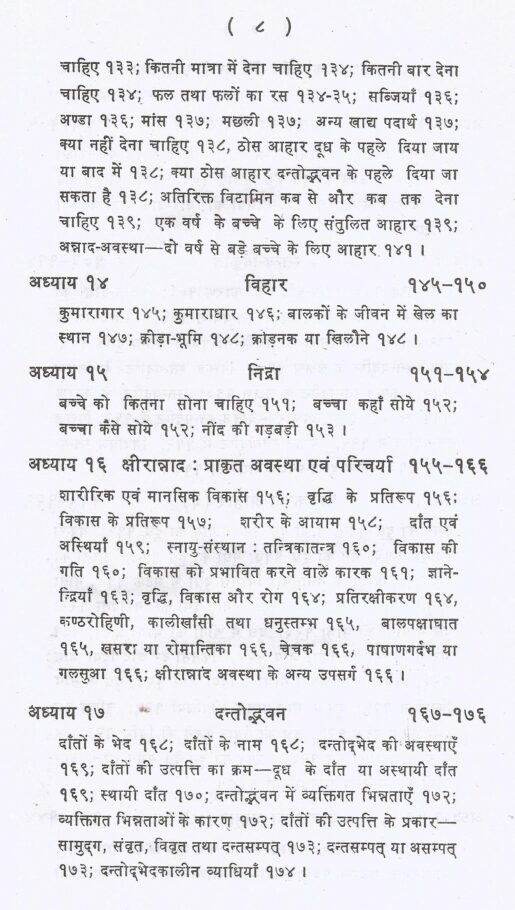 ( ८ )
चाहिए १३३; कितनी मात्रा में देना चाहिए १३४; कितनी बार देना
चाहिए १३४; फल तथा फलों का रस १३४-३५; सब्जियाँ १३६;
अण्डा १३६; मांस १३७; मछली १३७; अन्य खाद्य पदार्थ १३७;
क्या नहीं देना चाहिए १३८, ठोस आहार दूध के पहले दिया जाय
या बाद में १३८; क्या ठोस आहार दन्तोद्भवन के पहले दिया जा
सकता है १३८; अतिरिक्त विटामिन कब से और कब तक देना
चाहिए १३९; एक वर्ष के बच्चे के लिए संतुलित आहार १३९;
अन्नाद-अवस्था—दो वर्ष से बड़े बच्चे के लिए आहार १४१ ।
अध्याय १४ विहार १४५-१५०
कुमारागार १४५; कुमाराधार १४६; बालकों के जीवन में खेल का
स्थान १४७; क्रीड़ा-भूमि १४८; क्रोड़नक या खिलौने १४८ ।
अध्याय १५ निद्रा १५१-१५४
बच्चे को कितना सोना चाहिए १५१; बच्चा कहाँ सोये १५२;
बच्चा कैसे सोये १५२; नींद की गड़बड़ी १५३ ।
अध्याय १६ क्षीरान्नाद : प्राकृत अवस्था एवं परिचर्या १५५-१६६
शारीरिक एवं मानसिक विकास १५६; वृद्धि के प्रतिरूप १५६:
विकास के प्रतिरूप १५७; शरीर के आयाम १५८; दाँत एवं
अस्थियाँ १५९; स्नायु-संस्थान : तन्त्रिकातन्त्र १६०; विकास की
गति १६०; विकास को प्रभावित करने वाले कारक १६१; ज्ञाने-
न्द्रियाँ १६३; वृद्धि, विकास और रोग १६४; प्रतिरक्षीकरण १६४,
कण्ठरोहिणी, कालीखाँसी तथा धनुस्तम्भ १६५, बालपक्षाघात
१६५, खसरा या रोमान्तिका १६६, चेचक १६६, पाषाणगर्दभ या
गलसुआ १६६; क्षीरान्नाद अवस्था के अन्य उपसर्ग १६६ ।
अध्याय १७ दन्तोद्भवन १६७-१७६
दाँतों के भेद १६८; दाँतों के नाम १६८; दन्तोद्‌भेद की अवस्थाएँ
१६९; दाँतों की उत्पत्ति का क्रम—दूध के दाँत या अस्थायी दाँत
१६९; स्थायी दाँत १७०; दन्तोद्भवन में व्यक्तिगत भिन्नताएँ १७२;
व्यक्तिगत भिन्नताओं के कारण १७२; दाँतों की उत्पत्ति के प्रकार—
सामुद्‌ग, संवृत, विवृत तथा दन्तसम्पत् १७३; दन्तसम्पत् या असम्पत्
१७३; दन्तोद्‌भेदकालीन व्याधियाँ १७४ ।